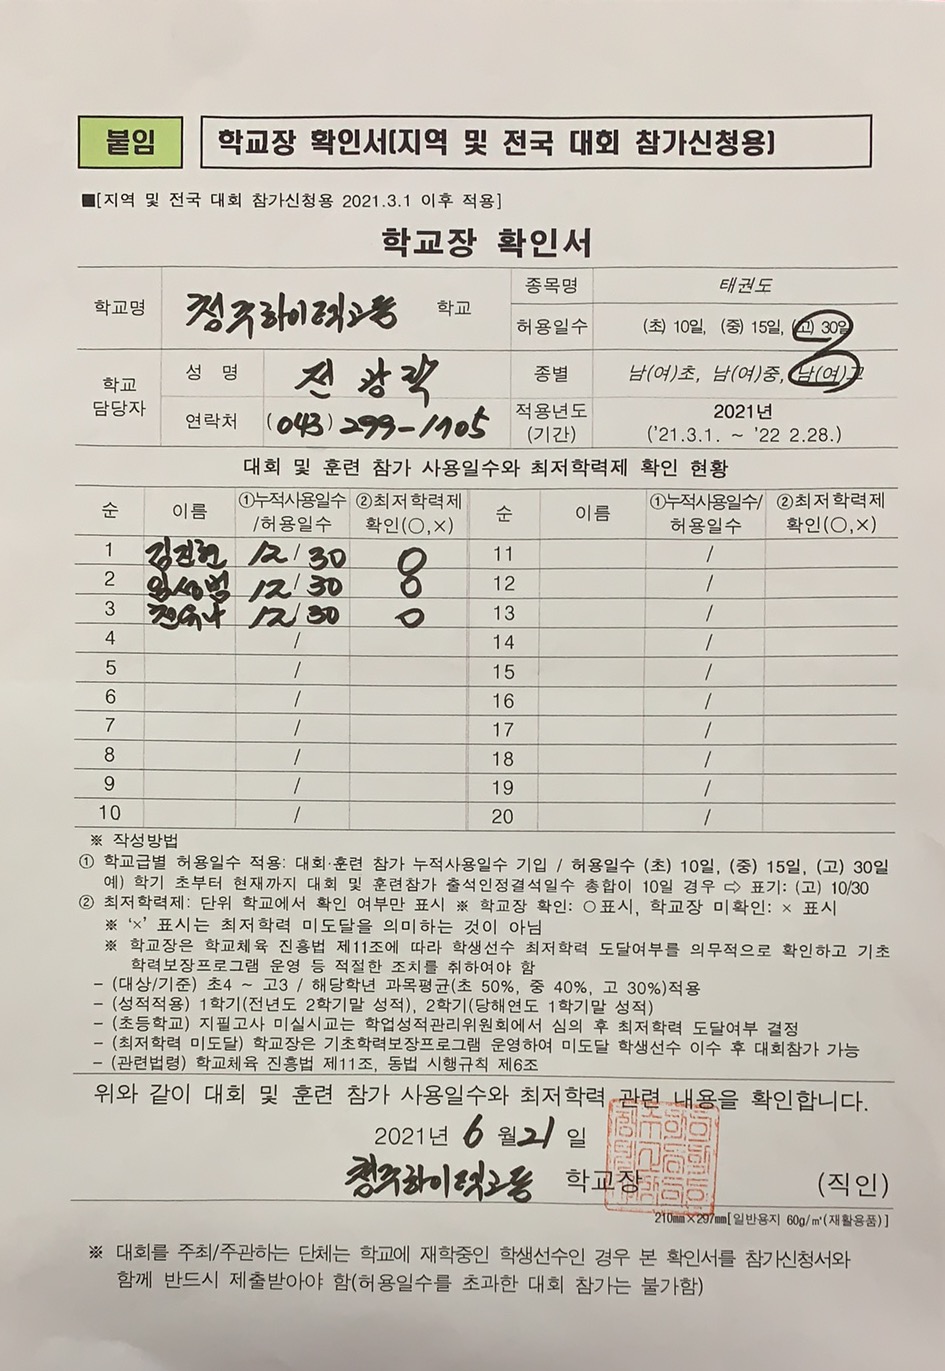 붙임 학교장 확인서(지역 및 전국 대회 참가신청용)
■[지역 및 전국 대회 참가신청용 2021.3.1 이후 적용]
학교장 확인서
학교명 청주하이텍고등 학교 종목명 태권도
허용일수 (초) 10일, (중) 15일, (고) 30일
학교 담당자 성 명 전광락 종별 남(여)초, 남(여)중, 남(여)고
연락처 (043) 299-1105 적용년도 (기간) 2021년 ('21.3.1. ~ '22 2.28.)
대회 및 훈련 참가 사용일수와 최저학력제 확인 현황
순 이름 ①누적사용일수/허용일수 ②최저학력제 확인(○,×) 순 이름 ①누적사용일수/허용일수 ②최저학력제 확인(○,×)
1 김진현 12/30 ○ 11 /
2 임성범 12/30 ○ 12 /
3 12/30 ○ 13 /
4 / 14 /
5 / 15 /
6 / 16 /
7 / 17 /
8 / 18 /
9 / 19 /
10 / 20 /
※ 작성방법
① 학교급별 허용일수 적용: 대회·훈련 참가 누적사용일수 기입 / 허용일수 (초) 10일, (중) 15일, (고) 30일
예) 학기 초부터 현재까지 대회 및 훈련참가 출석인정결석일수 총합이 10일 경우 ⇨ 표기: (고) 10/30
② 최저학력제: 단위 학교에서 확인 여부만 표시 ※ 학교장 확인: ○표시, 학교장 미확인: × 표시
※ '×' 표시는 최저학력 미도달을 의미하는 것이 아님
※ 학교장은 학교체육 진흥법 제11조에 따라 학생선수 최저학력 도달여부를 의무적으로 확인하고 기초
학력보장프로그램 운영 등 적절한 조치를 취하여야 함
- (대상/기준) 초4 ~ 고3 / 해당학년 과목평균(초 50%, 중 40%, 고 30%)적용
- (성적적용) 1학기(전년도 2학기말 성적), 2학기(당해연도 1학기말 성적)
- (초등학교) 지필고사 미실시교는 학업성적관리위원회에서 심의 후 최저학력 도달여부 결정
- (최저학력 미도달) 학교장은 기초학력보장프로그램 운영하여 미도달 학생선수 이수 후 대회참가 가능
- (관련법령) 학교체육 진흥법 제11조, 동법 시행규칙 제6조
위와 같이 대회 및 훈련 참가 사용일수와 최저학력 관련 내용을 확인합니다.
2021년 6 월 21 일
청주하이텍고등 학교장 (직인)
210㎜×297㎜[일반용지 60g/㎡(재활용품)]
※ 대회를 주최/주관하는 단체는 학교에 재학중인 학생선수인 경우 본 확인서를 참가신청서와
함께 반드시 제출받아야 함(허용일수를 초과한 대회 참가는 불가함)